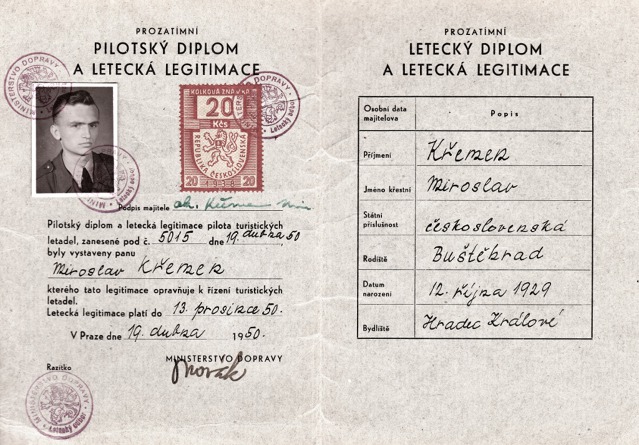 PROZATÍMNÍ
PILOTSKÝ DIPLOM
A LETECKÁ LEGITIMACE
MINISTERSTVO DOPRAVY
KOLKOVÁ ZNÁMKA
20
Kčs
REPUBLIKA ČESKOSLOVENSKÁ
20 20
Podpis majitele
Pilotský diplom a letecká legitimace pilota turistických
letadel, zanesené pod č. 5015 dne 19. dubna, 50
byly vystaveny panu
Miroslav Křemek
kterého tato legitimace opravňuje k řízení turistických
letadel.
Letecká legitimace platí do 13. prosince 50.
V Praze dne 19. dubna 1950.
MINISTERSTVO DOPRAVY
Novák
Razítko
MINISTERSTVO DOPRAVY
Letecký odbor
PROZATÍMNÍ
LETECKÝ DIPLOM
A LETECKÁ LEGITIMACE
Osobní data majitelova
Popis
Příjmení Křemek
Jméno křestní Miroslav
Státní příslušnost československá
Rodiště Buštěhrad
Datum narození 12. října 1929
Bydliště Hradec Králové